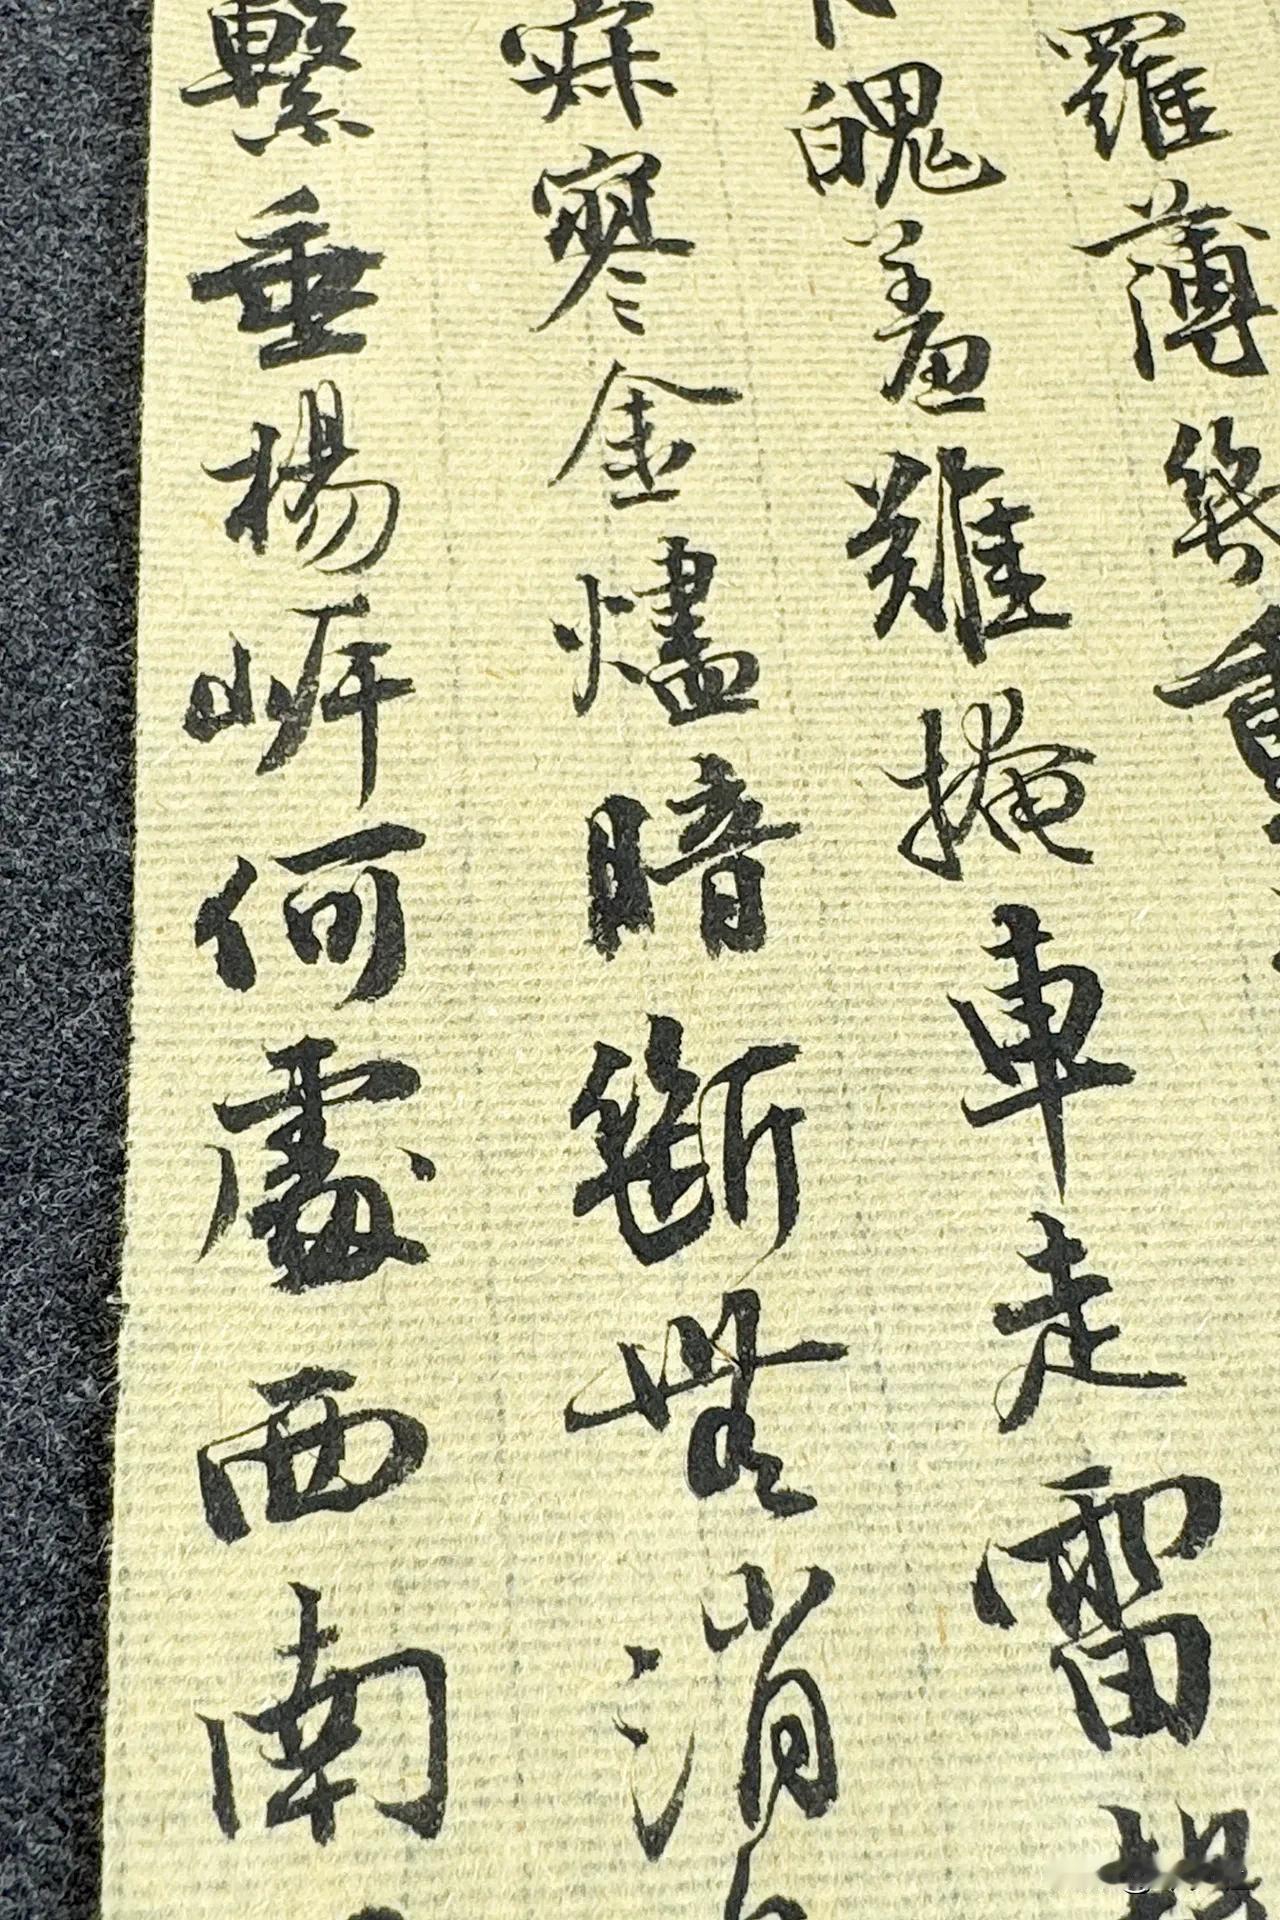 羅薄幾重
魄羞難掩車走雷
寂寥金燼暗斷無消
繫垂楊岸何處西南